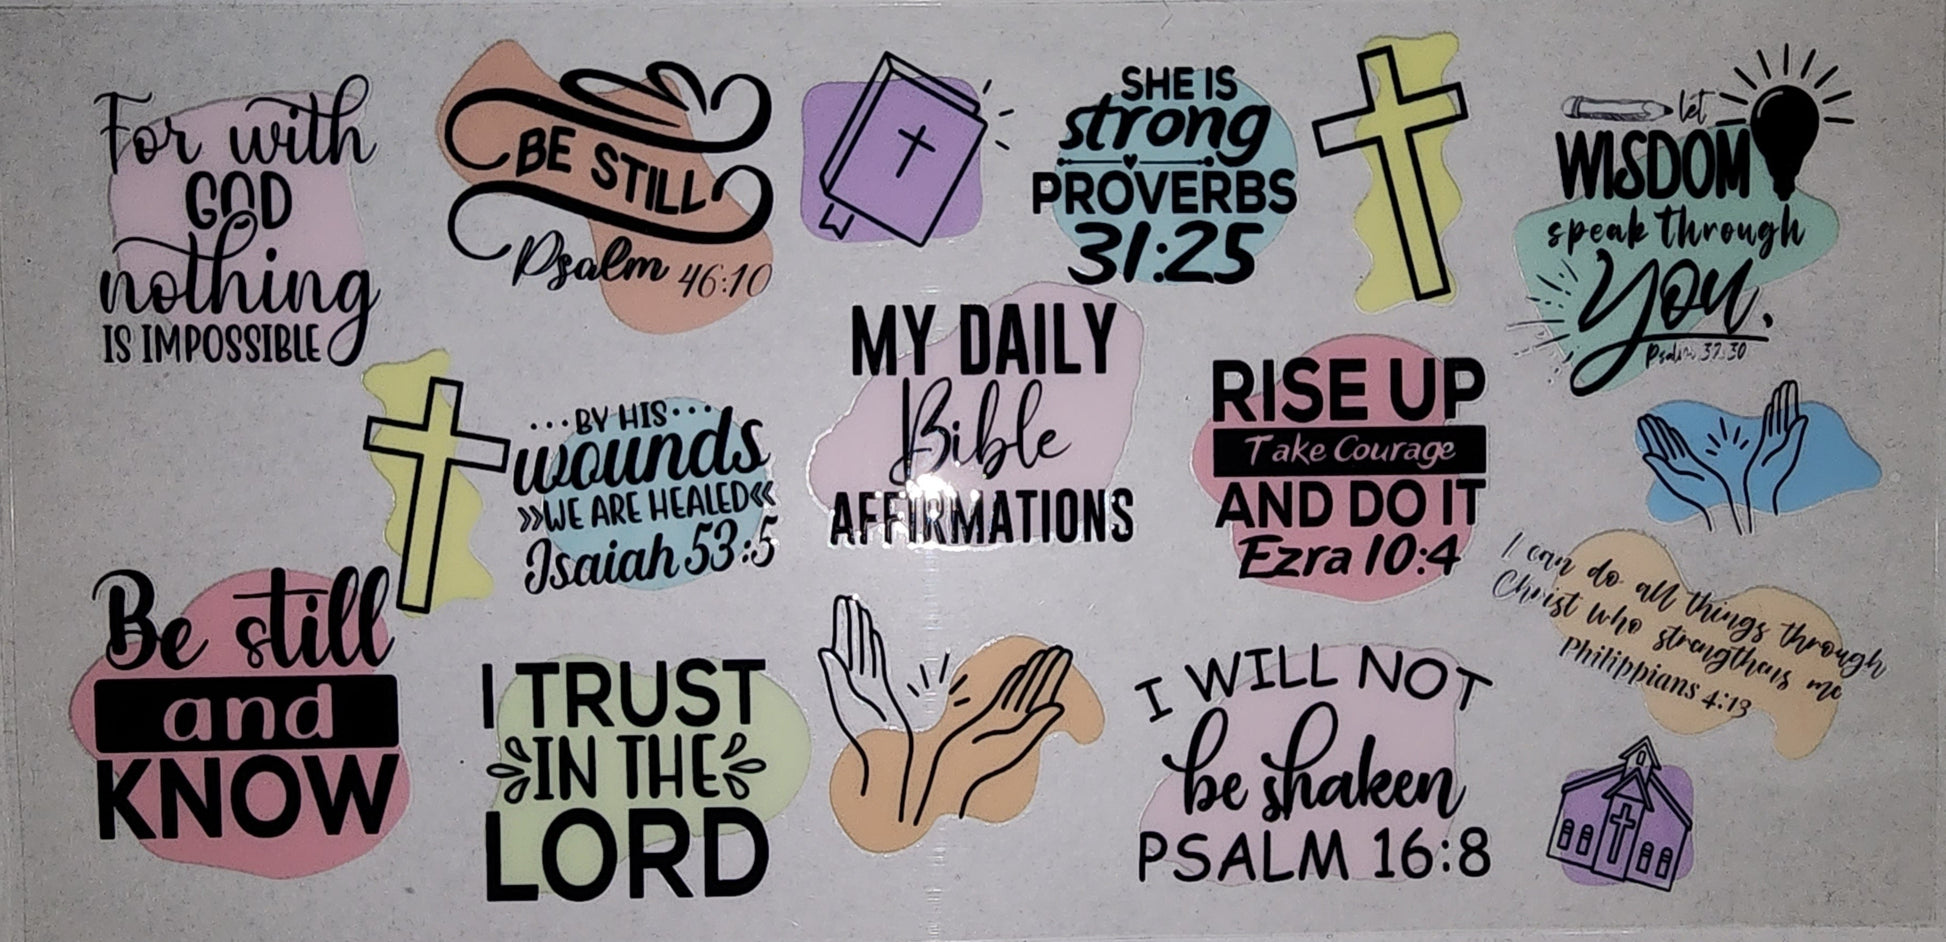 For with
GOD
nothing
IS IMPOSSIBLE
BE STILL
Psalm 46:10
SHE IS
strong
PROVERBS
31:25
let
WISDOM
speak through
You.
Psalm 37:30
BY HIS
wounds
WE ARE HEALED
Isaiah 53:5
MY DAILY
Bible
AFFIRMATIONS
RISE UP
Take Courage
AND DO IT
Ezra 10:4
I can do all things through
Christ who strengthens me
Philippians 4:13
Be still
and
KNOW
I TRUST
IN THE
LORD
I WILL NOT
be shaken
PSALM 16:8